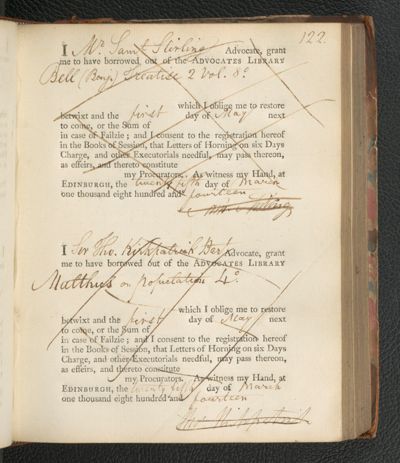 122.
I Mr. Saml. Stirling Advocate, grant
me to have borrowed out of the ADVOCATES LIBRARY
Bell (Benj.) Treatise 2 Vol. 8o
which I oblige me to restore
betwixt and the first day of May next
to come, or the Sum of
in case of Failzie; and I consent to the registration hereof
in the Books of Session, that Letters of Horning on six Days
Charge, and other Executorials needful, may pass thereon,
as effeirs, and thereto constitute
my Procurators. As witness my Hand, at
EDINBURGH, the twenty fifth day of March
one thousand eight hundred and fourteen
Stirling
I Sir Tho. Kirkpatrick Advocate, grant
me to have borrowed out of the ADVOCATES LIBRARY
Malthus on Population 4o.
which I oblige me to restore
betwixt and the first day of May next
to come, or the Sum of
in case of Failzie; and I consent to the registration hereof
in the Books of Session, that Letters of Horning on six Days
Charge, and other Executorials needful, may pass thereon,
as effeirs, and thereto constitute
my Procurators. As witness my Hand, at
EDINBURGH, the twenty fifth day of March
one thousand eight hundred and fourteen
Kirkpatrick